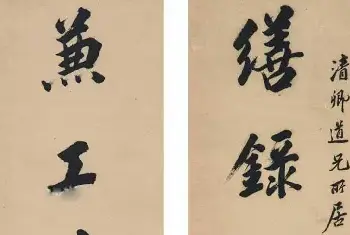 清卿道兄所居
繕錄
兼工